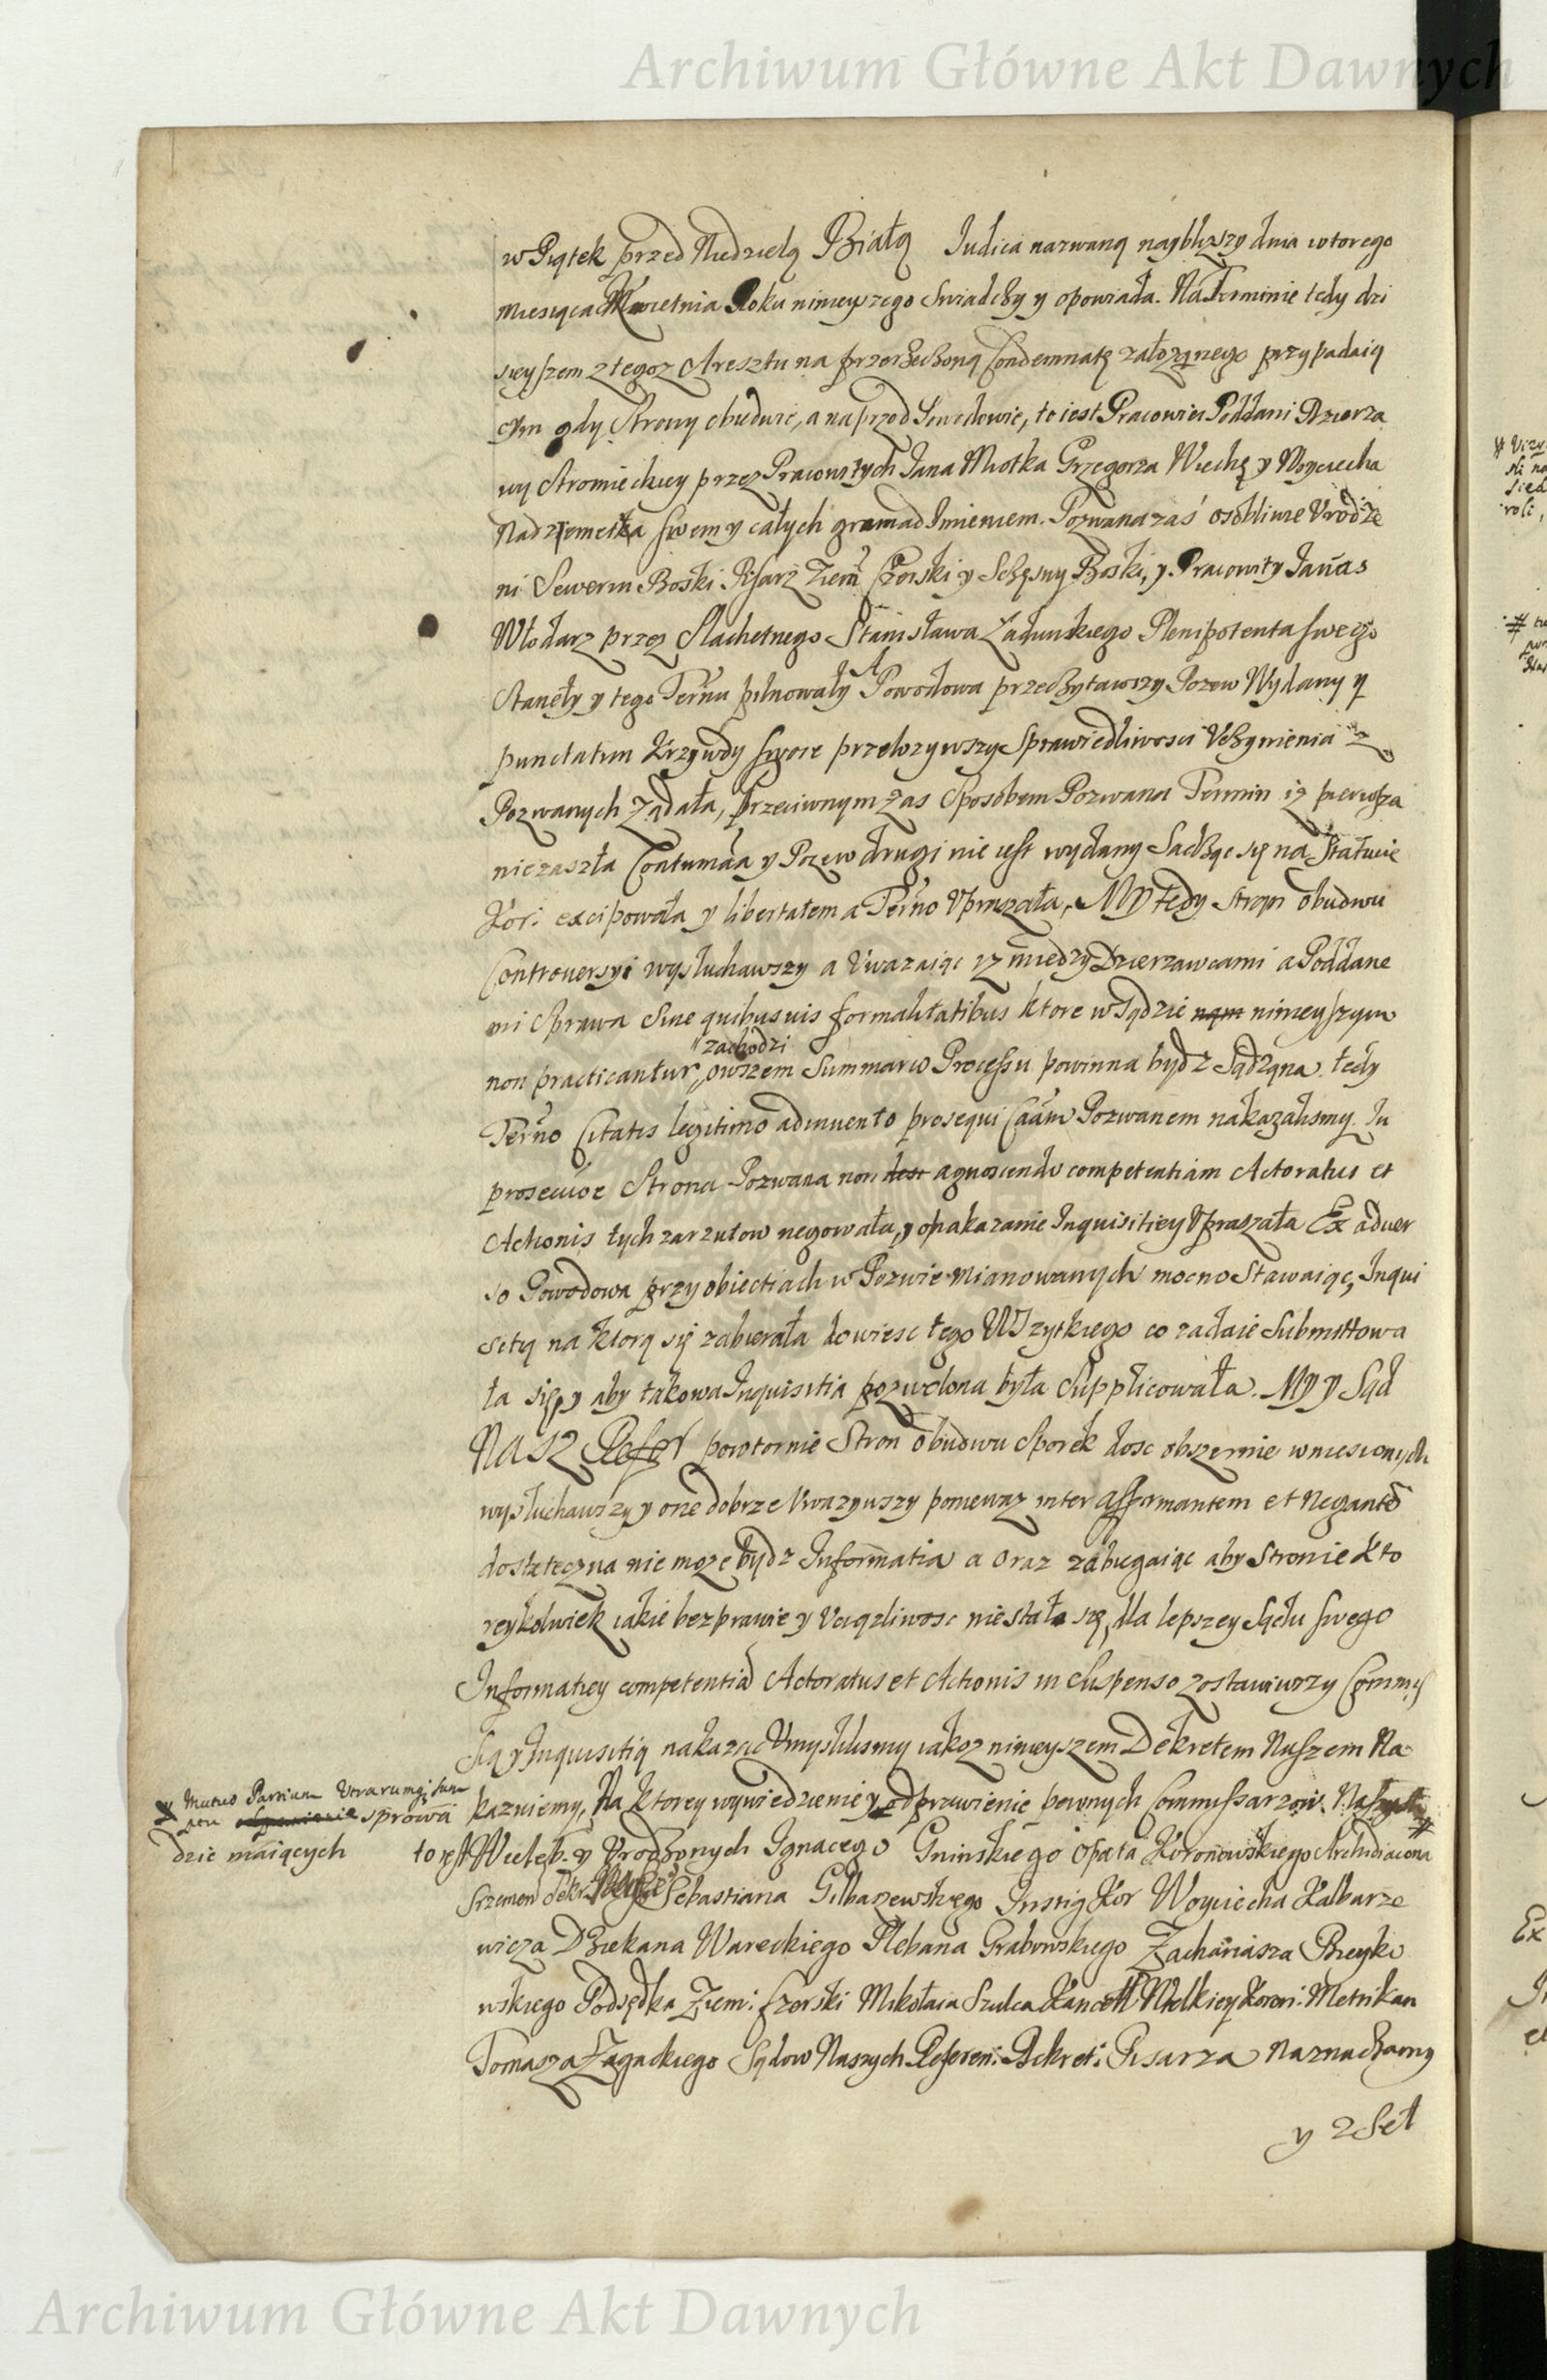 Archiwum Główne Akt Dawnych
w Piątek przed Niedzielą Białą Iudica nazwaną naybliższy dnia wtorego
miesiąca Kwietnia Roku ninieyszego swiadczy y opowiada. Na Terminie tedy dzi
sieyszem z tegoz Aresztu na przerzeczoną Condemnatę założonego przypadaią
cym gdy Strony obudwie, a naprzod Powodowie, to iest Pracowici Poddani Dzierza
wy Stromieckiey przez Pracowitych Jana Miotka Grzegorza Wiechę y Woyciecha
Nadziemetka swem y całych gromad Imieniem. Pozwana zaś osobliwie Vrodze
ni Sewerin Boski Pisarz Ziem Czerski y Sczęsny Boski, y Pracowity Janas
Włodarz przez Slachetnego Stanisława Załuskiego Plenipotenta swego
Stanęły y tego Termu pilnowały A Powodowa przeczytawszy Pozew Wydany y
punctatim krzywdy swoie przelozywszy Sprawiedliwosci Vczynienia z
Pozwanych Ządała, przeciwnym zas sposobem Pozwana Termin iz pierwsza
nie zaszła Contumatia y Pozew drugi nie iest wydany Sadząc się na Statucie
Kor: excipowała y libertatem a Termo Vpraszała. My tedy Stron obudwu
Controuersyi wysłuchawszy a Vwazaiąc iz między Dzierzawcami a Poddane
mi sprawa sine quibusuis formalitatibus ktore w Sądzie nąm ninieyszym
zachodzi
non practicantur, owszem Summario Processu powinna bydz Sądzona. tedy
Termo Citatis legitimo adinuento prosequi Caam Pozwanem nakazalismy. In
prosecutione Strona Pozwana non agnoscendo competentiam Actoratus et
Actionis tych zarzutow negowała, y o nakazanie Inquisitiey Vpraszała Ex aduer
so Powodowa przy obiectiach w Pozwie mianowanych mocno Stawaiąc, Inqui
sitią na ktorą się zabierała dowiesc tego Wszytkiego co zadaie Submittowa
ła się, y aby takowa Inquisitia pozwolona była Supplicowała. My y Sąd
Nasz Refer powtornie Stron obudwu sporek dosc obszernie wniesionych
wysłuchawszy y one dobrze Vwazywszy poniewaz inter affirmantem et negante
dostateczna nie moze bydz Informatia a oraz zabiegaiąc aby Stronie kto
reykolwiek iakie bezprawie y Vciązliwosc nie stała się, dla lepszey Sądu swego
Informatiey competentia Actoratus et Actionis in suspenso zostawiwszy Commis
sią y Inquisitią nakazac Vmyslilismy iakoz ninieyszem Dekretem Naszem Na
kazuiemy, Na ktorey wywiedzienie y odprawienie pewnych Commissarzow Naszych #
y Mutuo Partium Vtrarumq; sum
ptu sprowa
dzic maiących
to iest Wieleb. y Vrodzonych Ignacego Gninskiego Opata Koronowskiego Archidiacona
Sekr Sebastiana Gilbaszewskiego Instig Kor Woyciecha Kalbarze
wicza Dziekana Wareckiego Plebana Grabowskiego Zachariasza Breyko
wskiego Podsędka Ziem: Czerski Mikołaia Szulca Kancell Wielkiey Koron: Metrikan
Tomasza Zagackiego Sądow Naszych Referen: Dekret: Pisarza naznaczamy
y z Set
Archiwum Główne Akt Dawnych